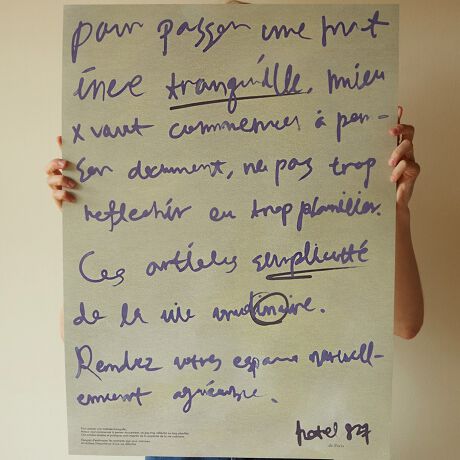 pour passer une mat
inée tranquille, mieu
x vaut commencer à pen-
ser document, ne pas trop
reflechir ou trop planifier.
Ces articles simplicité
de la vie
Rendez votres espace naturell-
ement agréable.
hotel 827
de Paris